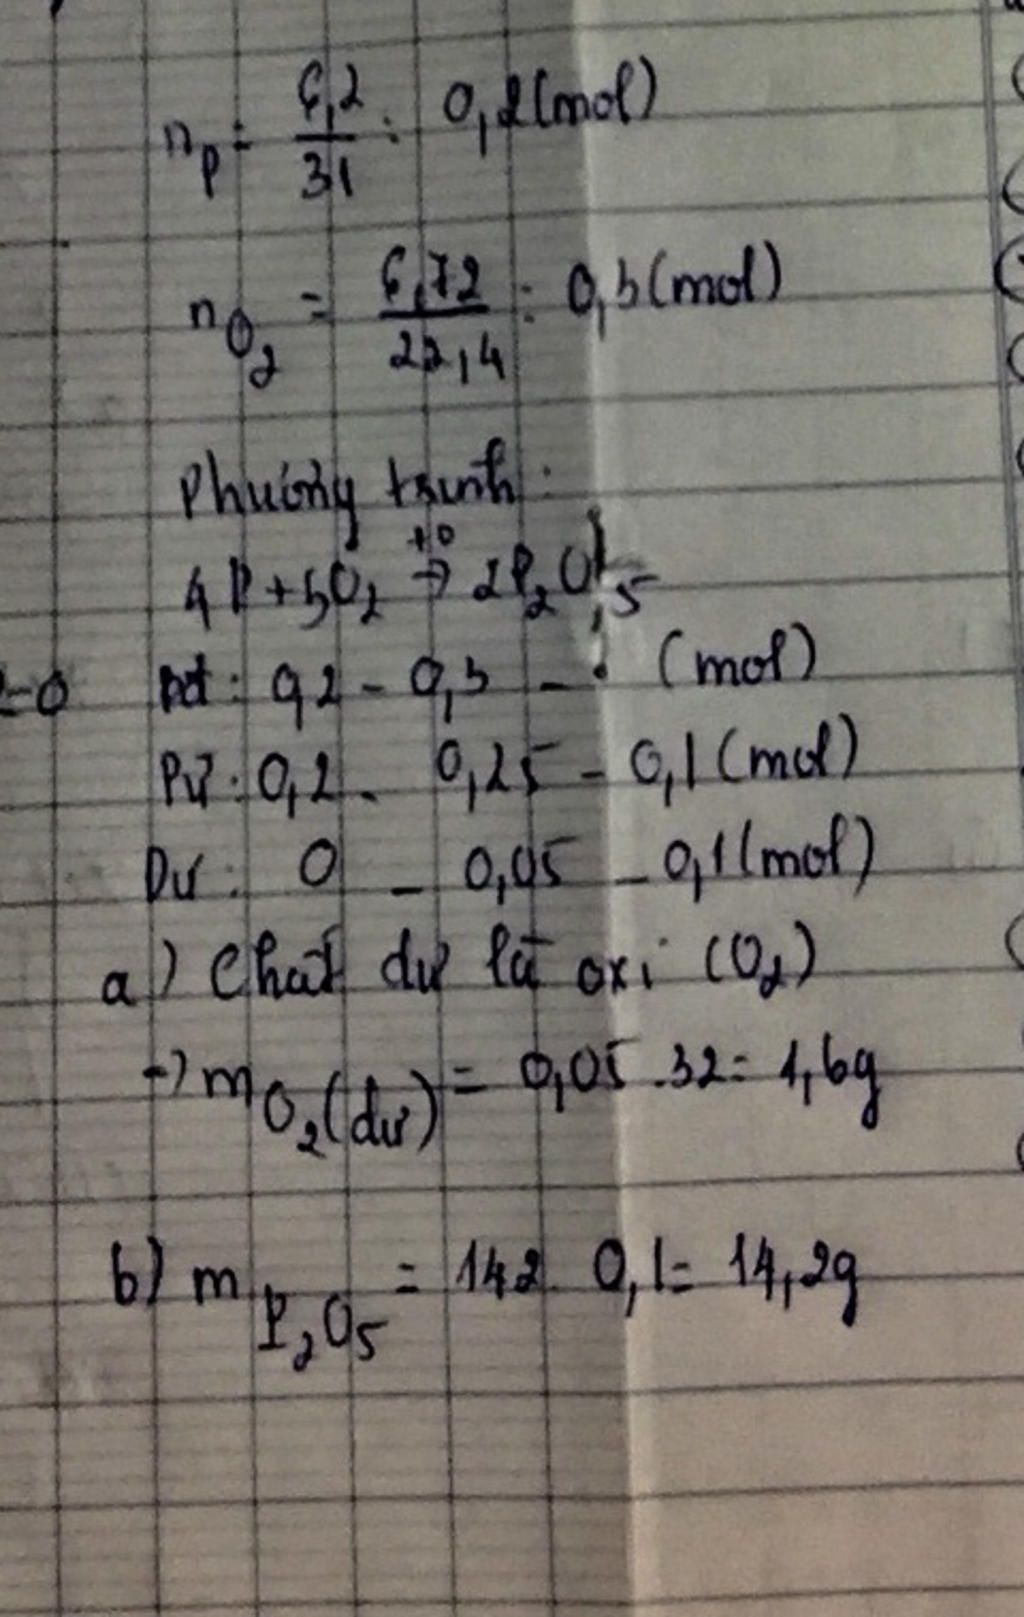 n_P = 6,2/31 = 0,2 (mol)
n_O₂ = 6,72/22,4 = 0,3 (mol)
Phương trình:
4P + 5O₂ →(t°) 2P₂O₅
bđ: 0,2 - 0,3 - (mol)
Pứ: 0,2 - 0,25 - 0,1 (mol)
Dư: 0 - 0,05 - 0,1 (mol)
a) Chất dư là oxi (O₂)
→ m_O₂(dư) = 0,05 . 32 = 1,6g
b) m_P₂O₅ = 142 . 0,1 = 14,2g